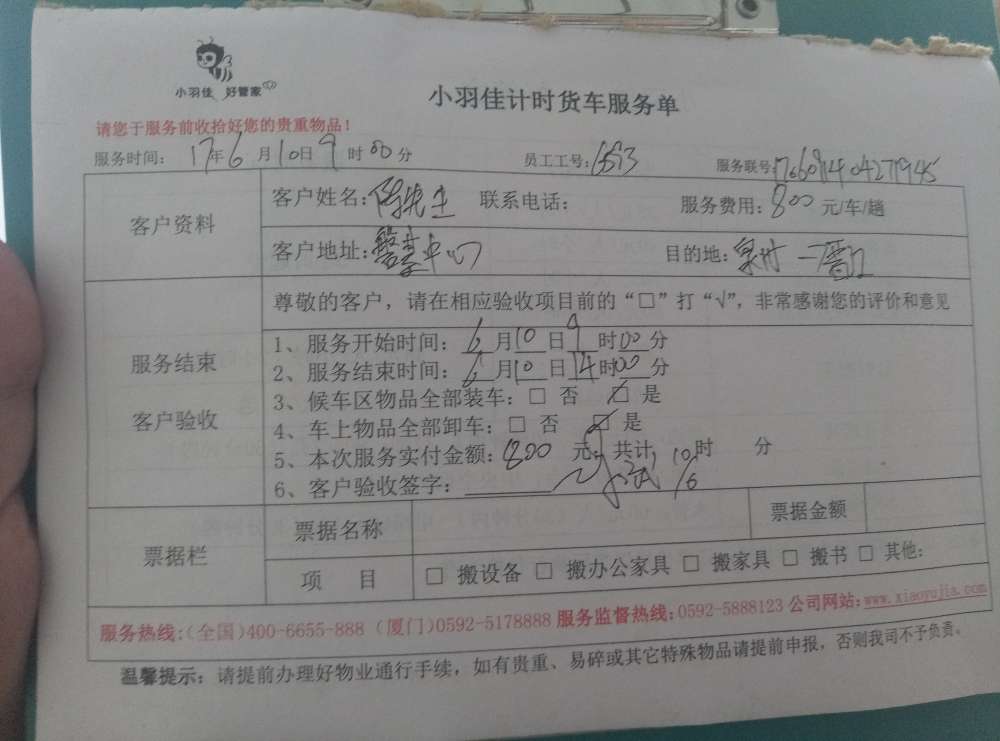 小羽佳 好管家
小羽佳计时货车服务单
请您于服务前收拾好您的贵重物品！
服务时间： 17年6月10日9时00分 员工工号： 服务联号
客户资料
客户姓名：陈先生 联系电话： 服务费用：800元/车/趟
客户地址：中心 目的地：
尊敬的客户，请在相应验收项目前的“□”打“√”，非常感谢您的评价和意见
服务结束
客户验收
1、服务开始时间： 6月10日9时00分
2、服务结束时间： 6月10日14时00分
3、候车区物品全部装车：□ 否 ☑ 是
4、车上物品全部卸车：□ 否 ☑ 是
5、本次服务实付金额：800 元，共计， 时 分
6、客户验收签字： 10/6
票据栏
票据名称 票据金额
项 目 □ 搬设备 □ 搬办公家具 □ 搬家具 □ 搬书 □ 其他：
服务热线：(全国)400-6655-888 (厦门)0592-5178888 服务监督热线：0592-5888123 公司网站：www.xiaoyujia.com
温馨提示：请提前办理好物业通行手续，如有贵重、易碎或其它特殊物品请提前申报，否则我司不予负责。